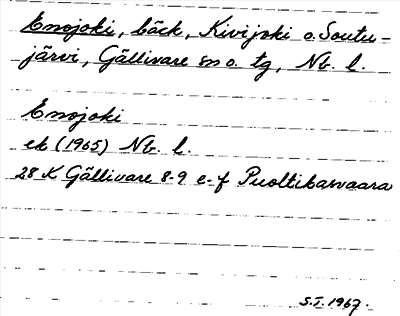 Enojoki, bäck, Kivijoki o. Soutu-
järvi, Gällivare sn o. tg, Nb. l.
Enojoki
ek (1965) Nb. l.
28 K Gällivare 8-9 e-f Puoltikasvaara
S.I. 1967.